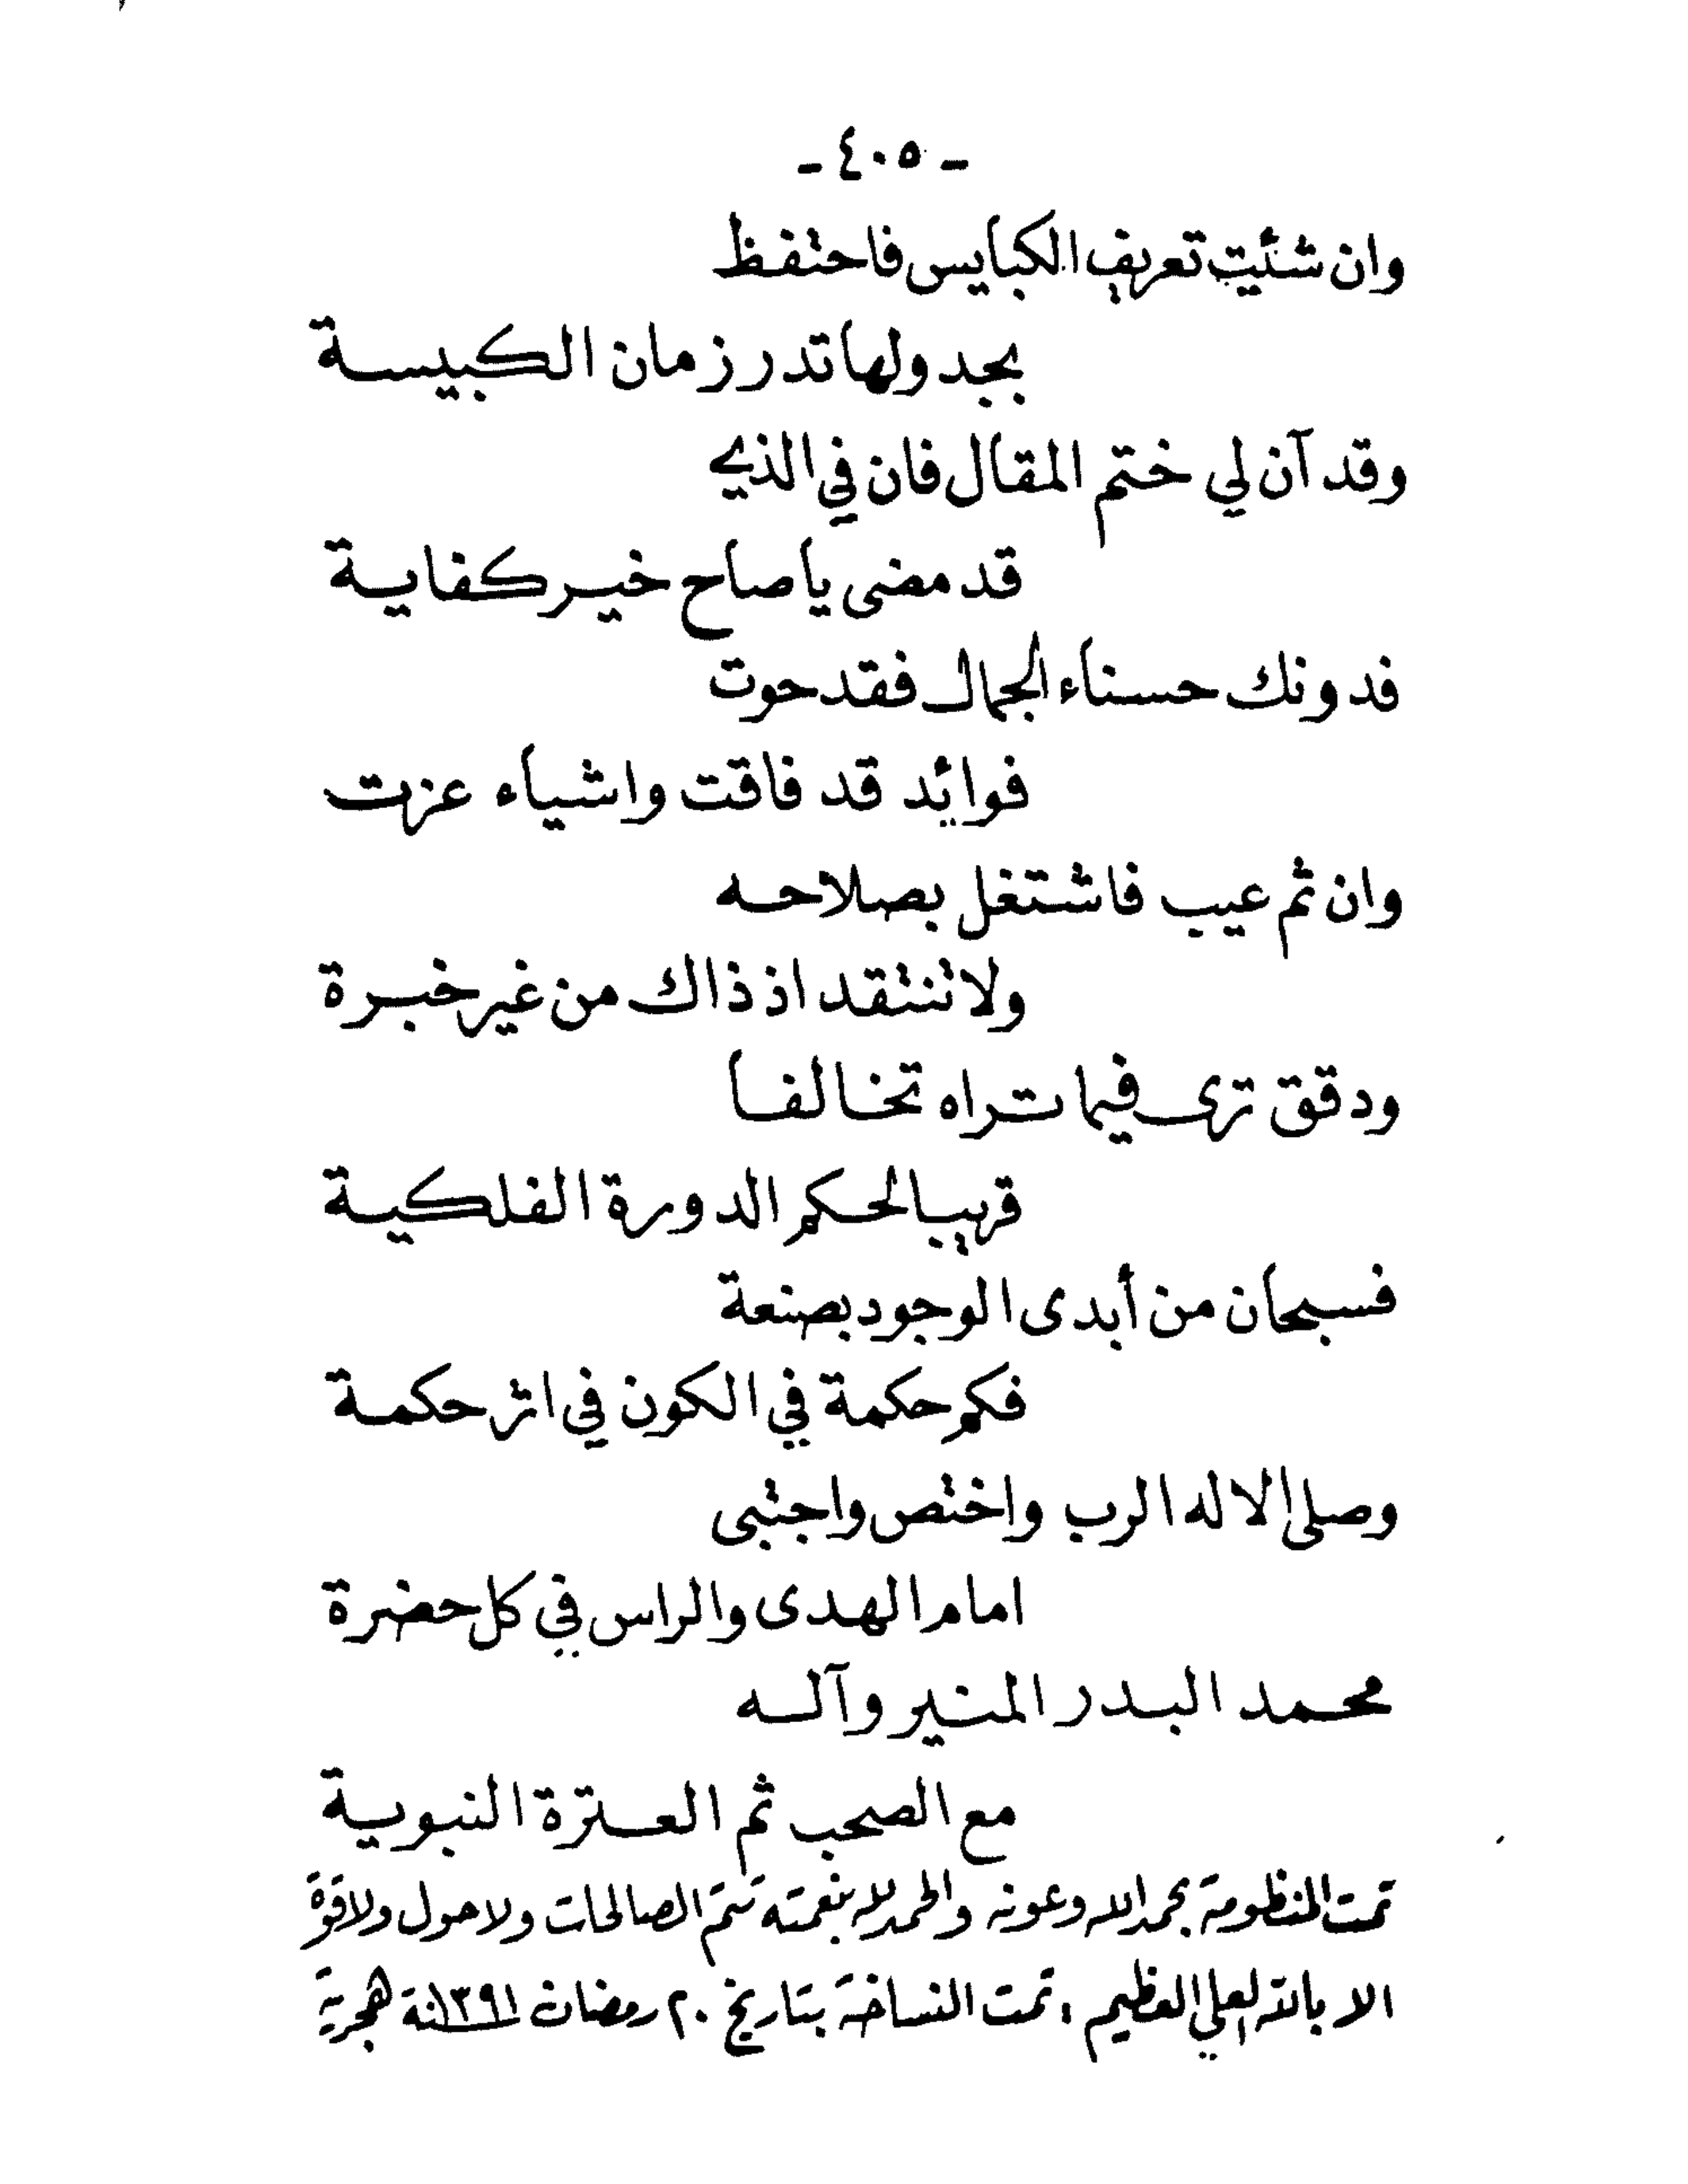 - ٤٠٥ -
وان شئيت تعريف الكبايس فاحتفظ
بجدولها تدر زمان الكبيسة
وقد آن لي ختم المقال فان في الذي
قد مضى يا صاح خير كفاية
فدونك حسناء الجمال فقد حوت
فوائد قد فاقت واشياء عزت
وان ثم عيب فاشتغل بصلاحه
ولا تنتقد اذ ذاك من غير خبرة
ودقق ترى فيما تراه تخالفا
قريبا لحكم الدورة الفلكية
فسبحان من أبدى الوجود بصنعة
فكم حكمة في الكون في اثر حكمة
وصلى الاله الرب واختص واجتبى
امام الهدى والراس في كل حضرة
محمد البدر المنير وآله
مع الصحب ثم العترة النبوية
تمت المنظومة بحمد الله وعونه والحمد لله بنعمته تتم الصالحات ولا حول ولا قوة
الا بالله العلي العظيم ، تمت النساخة بتاريخ ٢٠ رمضان ١٣٩١نة هجرية